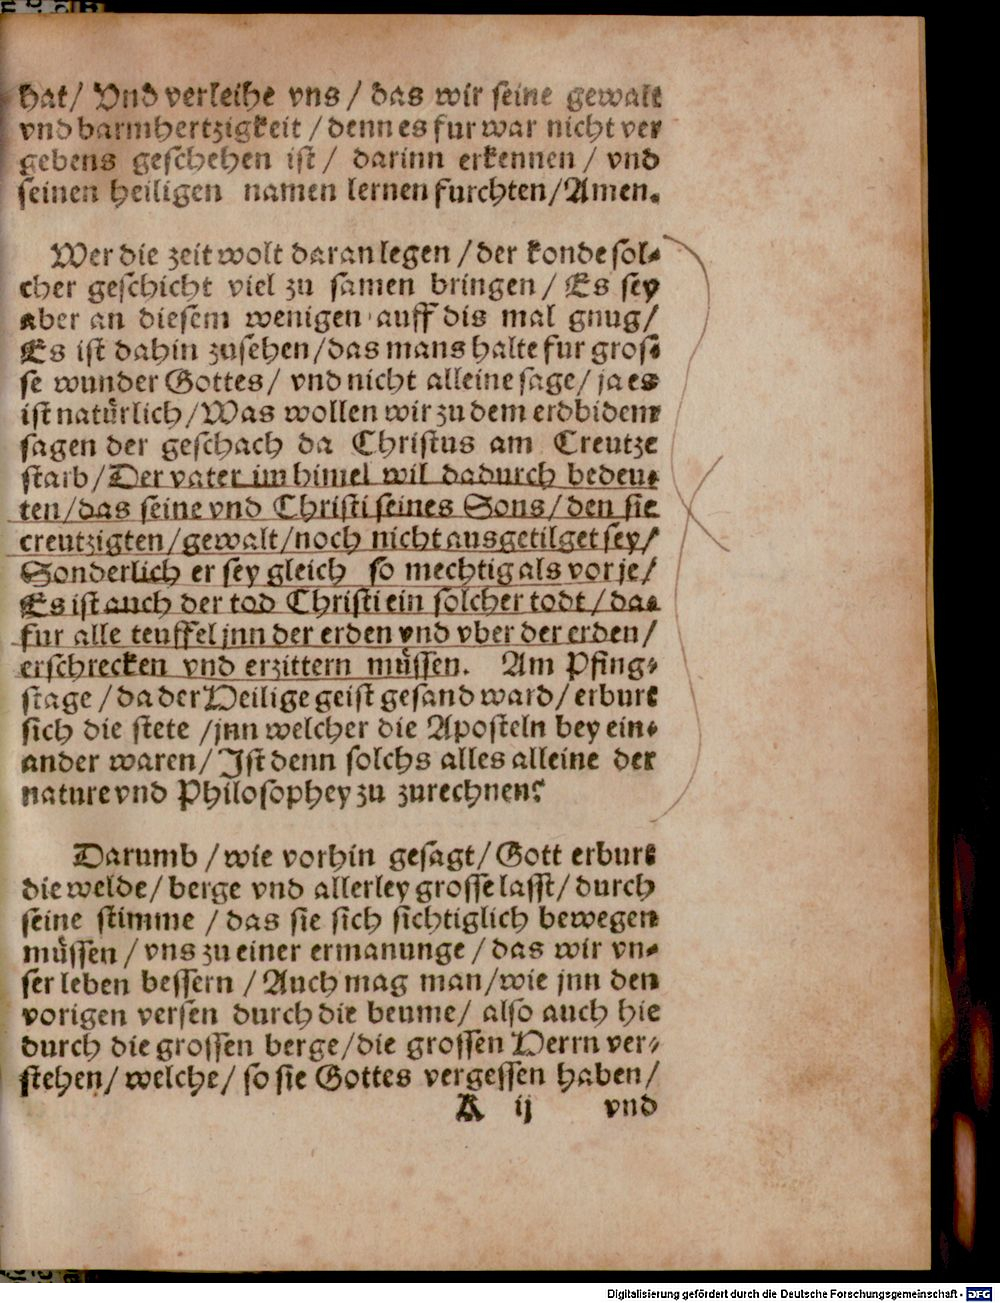 hat/ Vnd verleihe vns / das wir seine gewalt
vnd barmhertzigkeit / denn es fur war nicht ver
gebens geschehen ist / darinn erkennen / vnd
seinen heiligen namen lernen furchten / Amen.
Wer die zeit wolt daran legen / der konde sol⸗
cher geschicht viel zu samen bringen / Es sey
aber an diesem wenigen auff dis mal gnug /
Es ist dahin zusehen / das mans halte fur gros⸗
se wunder Gottes / vnd nicht alleine sage / ja es
ist natürlich / Was wollen wir zu dem erdbidem
sagen der geschach da Christus am Creutze
starb / Der vater im himel wil dadurch bedeu⸗
ten / das seine vnd Christi seines Sons / den sie
creutzigten / gewalt / noch nicht ausgetilget sey /
Sonderlich er sey gleich so mechtig als vor je /
Es ist auch der tod Christi ein solcher todt / da⸗
fur alle teuffel jnn der erden vnd vber der erden /
erschrecken vnd erzittern müssen. Am Pfing⸗
stage / da der Heilige geist gesand ward / erburt
sich die stete / jnn welcher die Aposteln bey ein⸗
ander waren / Ist denn solchs alles alleine der
nature vnd Philosophey zu zurechnen?
Darumb / wie vorhin gesagt / Gott erburt
die welde / berge vnd allerley grosse lasst / durch
seine stimme / das sie sich sichtiglich bewegen
müssen / vns zu einer ermanunge / das wir vn⸗
ser leben bessern / Auch mag man / wie jnn den
vorigen versen durch die beume / also auch hie
durch die grossen berge / die grossen Herrn ver⸗
stehen / welche / so sie Gottes vergessen haben /
A ij vnd
Digitalisierung gefördert durch die Deutsche Forschungsgemeinschaft - DFG